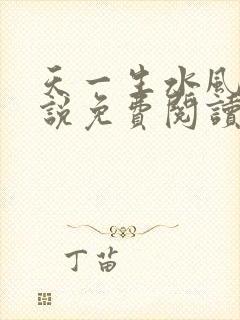 天一生水風
說免費閱讀
丁苗